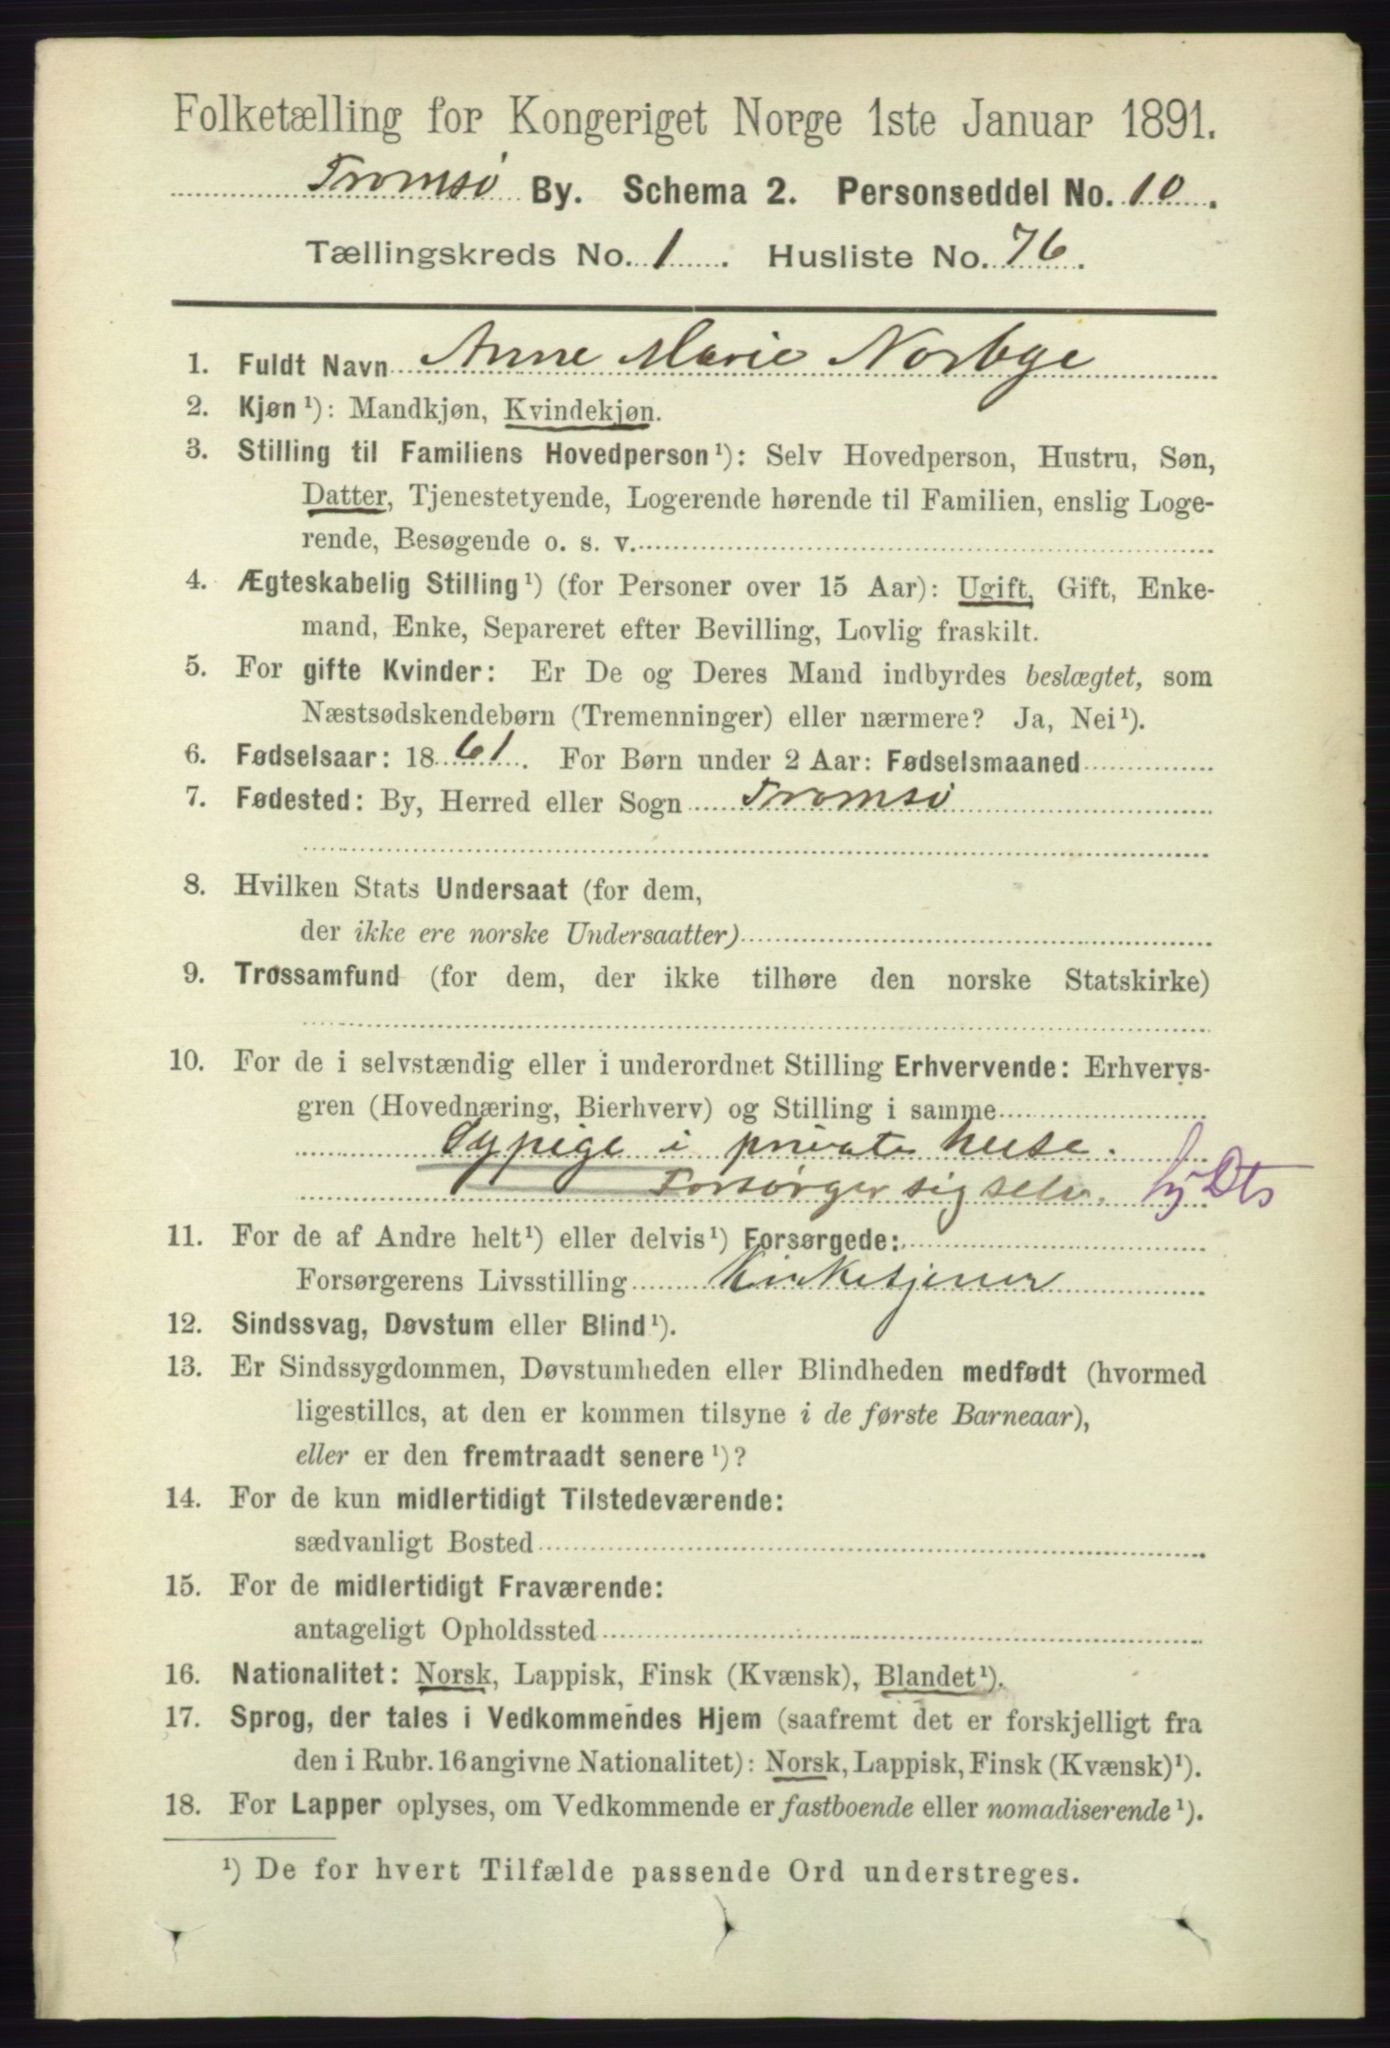 Folketælling for Kongeriget Norge 1ste Januar 1891.
Tromsø By. Schema 2. Personseddel No. 10.
Tællingskreds No. 1. Husliste No. 76.
1. Fuldt Navn Anne Marie Norbye
2. Kjøn¹): Mandkjøn, Kvindekjøn.
3. Stilling til Familiens Hovedperson¹): Selv Hovedperson, Hustru, Søn,
Datter, Tjenestetyende, Logerende hørende til Familien, enslig Loge-
rende, Besøgende o. s. v.
4. Ægteskabelig Stilling¹) (for Personer over 15 Aar): Ugift, Gift, Enke-
mand, Enke, Separeret efter Bevilling, Lovlig fraskilt.
5. For gifte Kvinder: Er De og Deres Mand indbyrdes beslægtet, som
Næstsødskendebørn (Tremenninger) eller nærmere? Ja, Nei¹).
6. Fødselsaar: 1861. For Børn under 2 Aar: Fødselsmaaned
7. Fødested: By, Herred eller Sogn Tromsø
8. Hvilken Stats Undersaat (for dem,
der ikke ere norske Undersaatter)
9. Trossamfund (for dem, der ikke tilhøre den norske Statskirke)
10. For de i selvstændig eller i underordnet Stilling Erhvervende: Erhvervs-
gren (Hovednæring, Bierhverv) og Stilling i samme
Sypige i private huse.
Forsørger sig selv.
11. For de af Andre helt¹) eller delvis¹) Forsørgede:
Forsørgerens Livsstilling Kirketjener
12. Sindssvag, Døvstum eller Blind¹).
13. Er Sindssygdommen, Døvstumheden eller Blindheden medfødt (hvormed
ligestilles, at den er kommen tilsyne i de første Barneaar),
eller er den fremtraadt senere¹)?
14. For de kun midlertidigt Tilstedeværende:
sædvanligt Bosted
15. For de midlertidigt Fraværende:
antageligt Opholdssted
16. Nationalitet: Norsk, Lappisk, Finsk (Kvænsk), Blandet¹).
17. Sprog, der tales i Vedkommendes Hjem (saafremt det er forskjelligt fra
den i Rubr. 16 angivne Nationalitet): Norsk, Lappisk, Finsk (Kvænsk)¹).
18. For Lapper oplyses, om Vedkommende er fastboende eller nomadiserende¹).
¹) De for hvert Tilfælde passende Ord understreges.